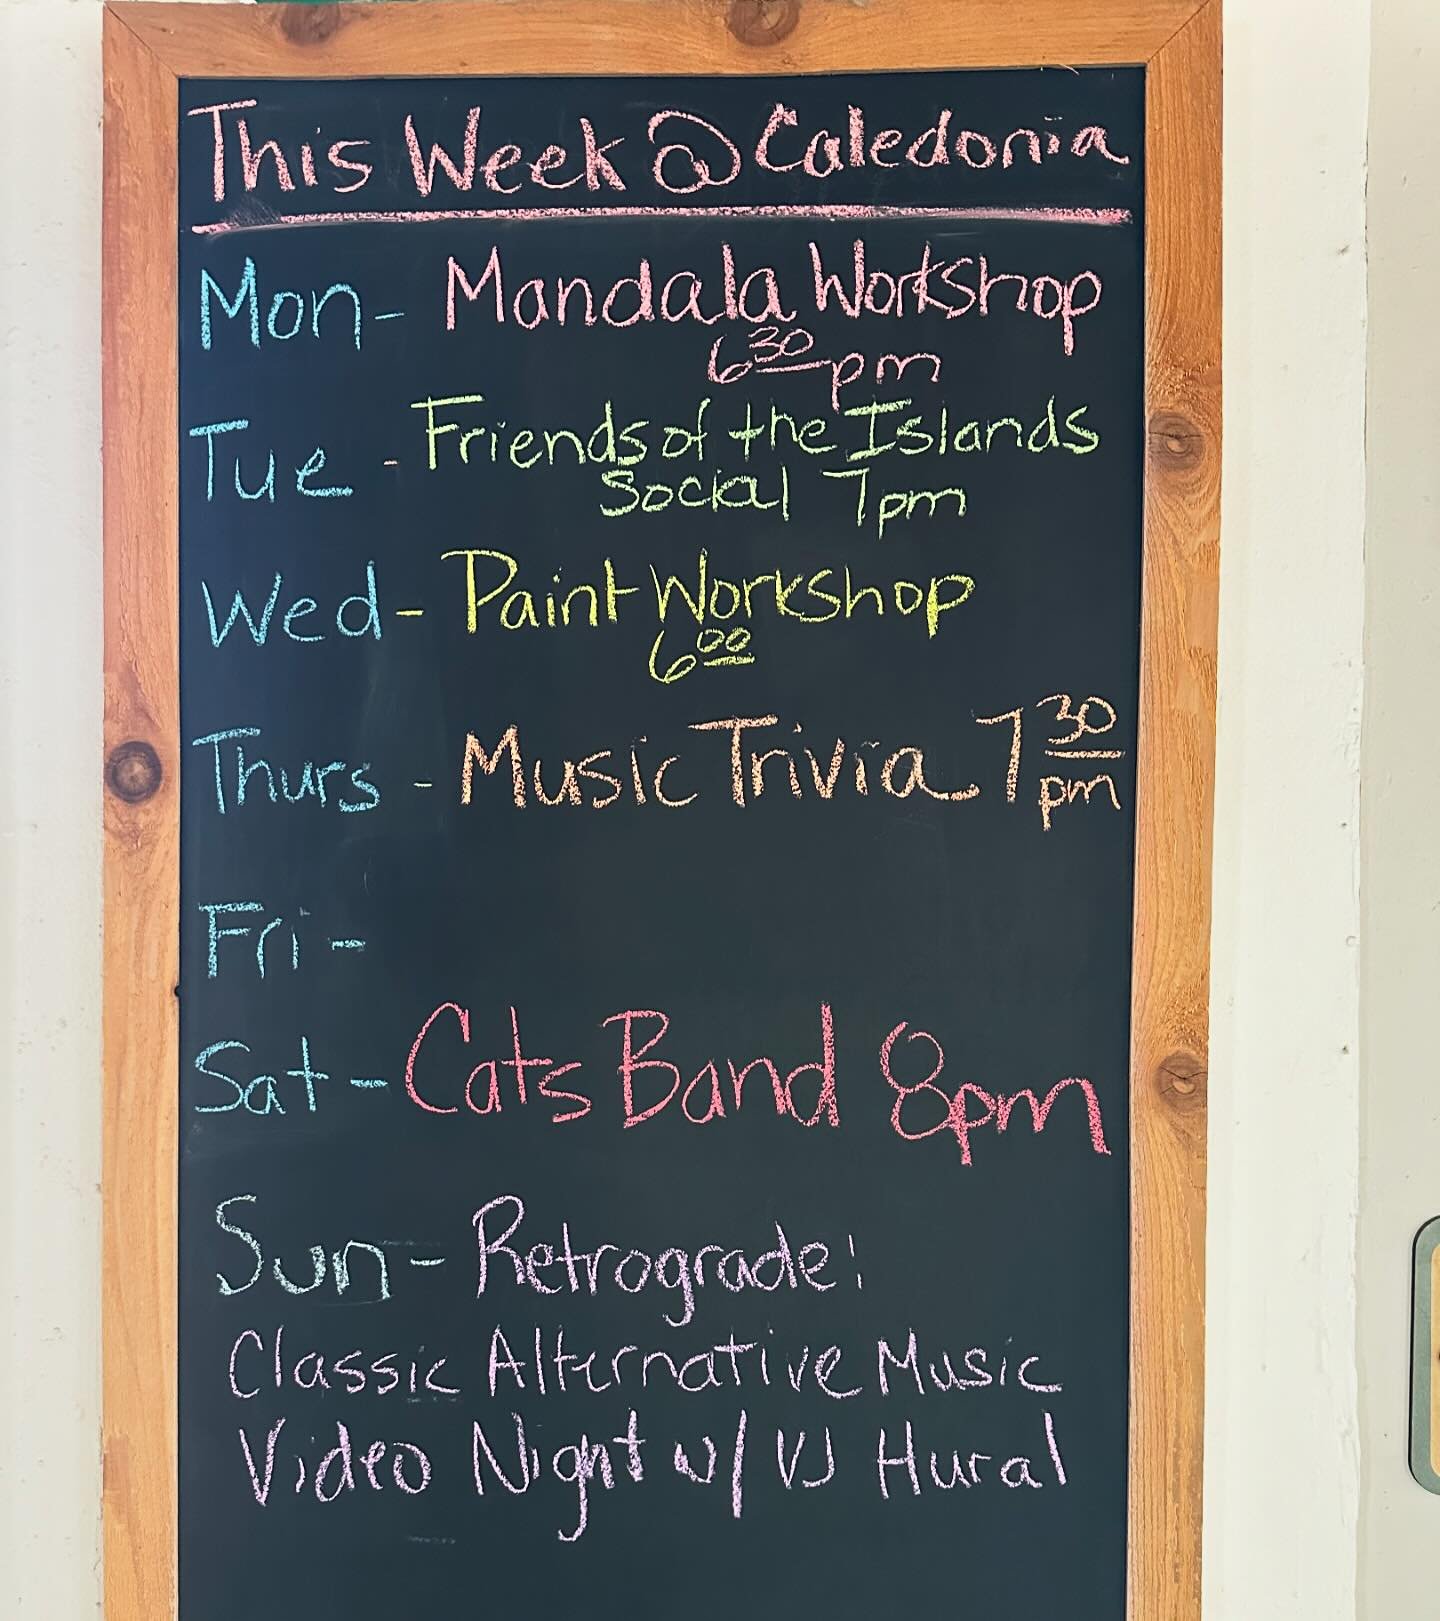 This Week @ Caledonia
Mon- Mandala Workshop
6 30 pm
Tue - Friends of the Islands
Social 7pm
Wed- Paint Workshop
6 00
Thurs - Music Trivia 7 30 pm
Fri-
Sat- Cats Band 8pm
Sun- Retrograde:
Classic Alternative Music
Video Night w/ VJ Hural